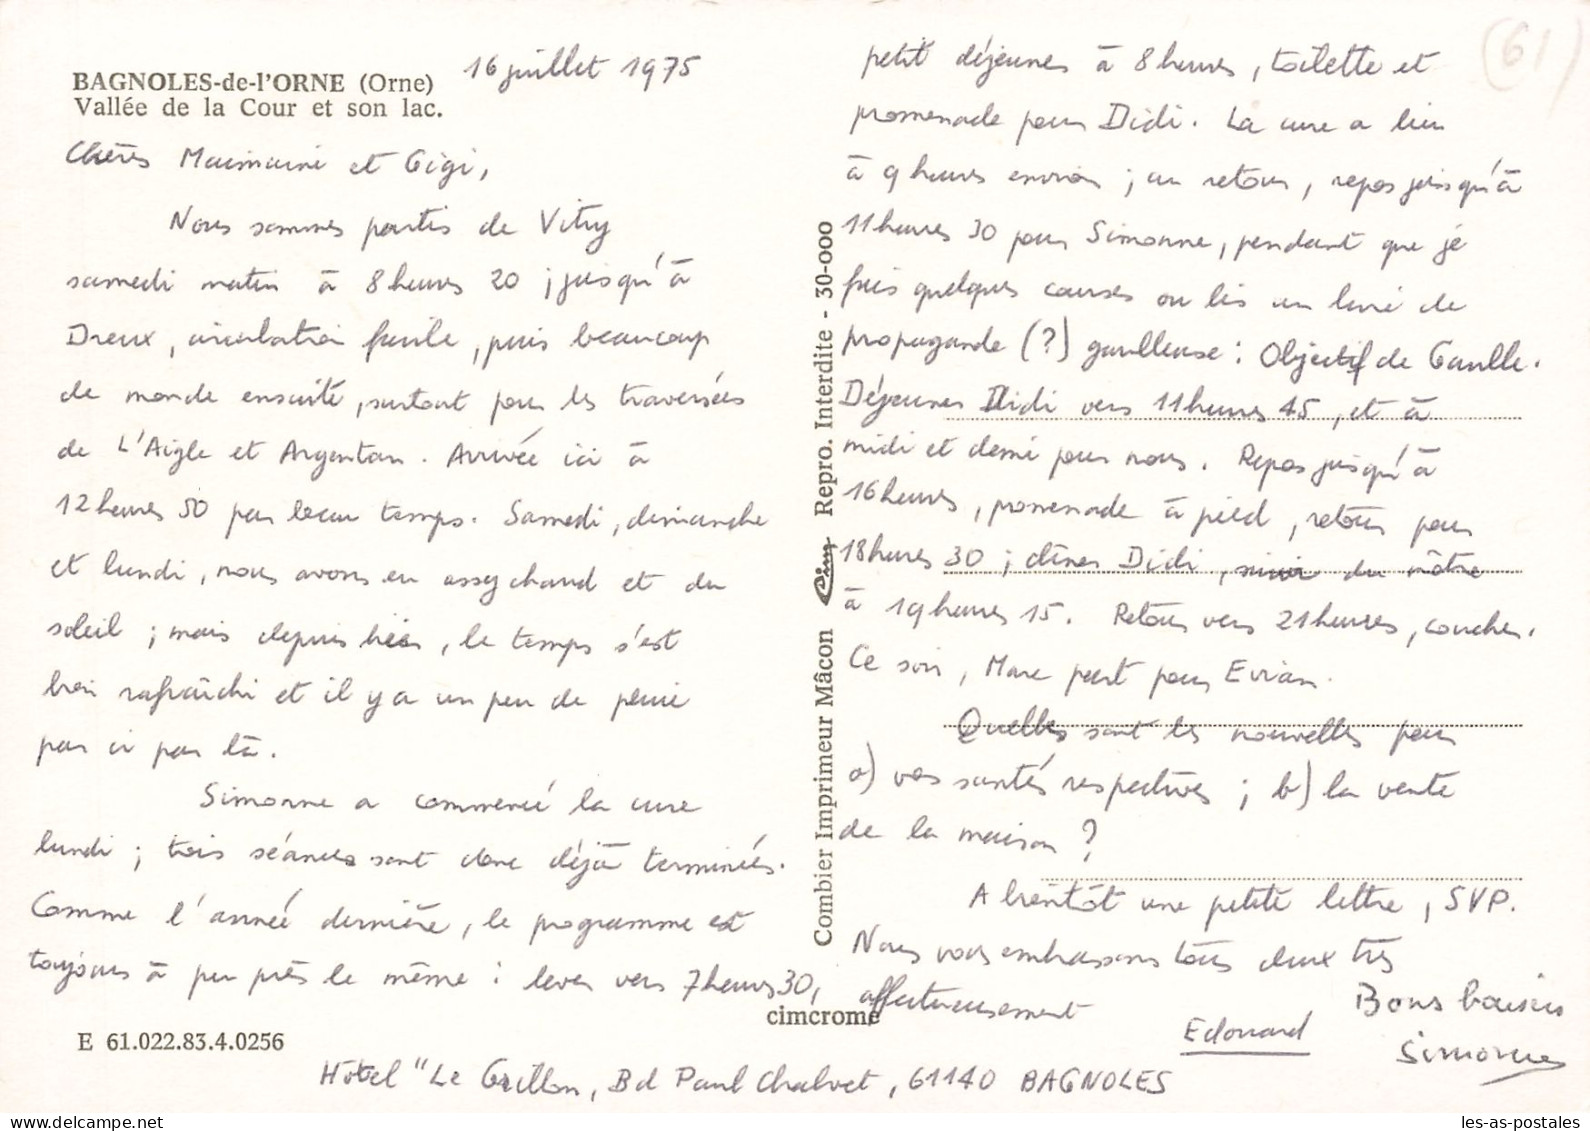 BAGNOLES-de-l'ORNE (Orne)
Vallée de la Cour et son lac.
16 juillet 1975
Chères Maimaine et Gigi,
Nous sommes partis de Vitry
samedi matin à 8 heures 20 ; jusqu'à
Dreux, circulation facile, puis beaucoup
de monde ensuite, surtout pour les traversées
de L'Aigle et Argentan. Arrivée ici à
12 heures 50 par beau temps. Samedi, dimanche
et lundi, nous avons eu assez chaud et du
soleil ; mais depuis hier, le temps s'est
bien rafraîchi et il y a un peu de pluie
par ci par là.
Simonne a commencé la cure
lundi ; trois séances sont donc déjà terminées.
Comme l'année dernière, le programme est
toujours à peu près le même : lever vers 7 heures 30,
petit déjeuner à 8 heures, toilette et
promenade pour Didi. La cure a lieu
à 9 heures environ ; au retour, repos jusqu'à
11 heures 30 pour Simonne, pendant que je
fais quelques courses ou lis un livre de
propagande (?) gaulleuse : Objectif de Gaulle.
Déjeuner Didi vers 11 heures 45, et à
midi et demi pour nous. Repos jusqu'à
16 heures, promenade à pied, retour pour
18 heures 30 ; dîner Didi, suivi du nôtre
à 19 heures 15. Retour vers 21 heures, coucher.
Ce soir, Marc part pour Evian.
Quelles sont les nouvelles pour
a) vos santés respectives ; b) la vente
de la maison ?
A bientôt une petite lettre, SVP.
Nous vous embrassons tous deux très
affectueusement
Edouard
Bons baisers
Simonne
Hôtel "Le Grillon, Bd Paul Chalvet, 61140 BAGNOLES
(61)
Combier Imprimeur Mâcon Cim Repro. Interdite - 30-000
cimcrome
E 61.022.83.4.0256
les-as-postales